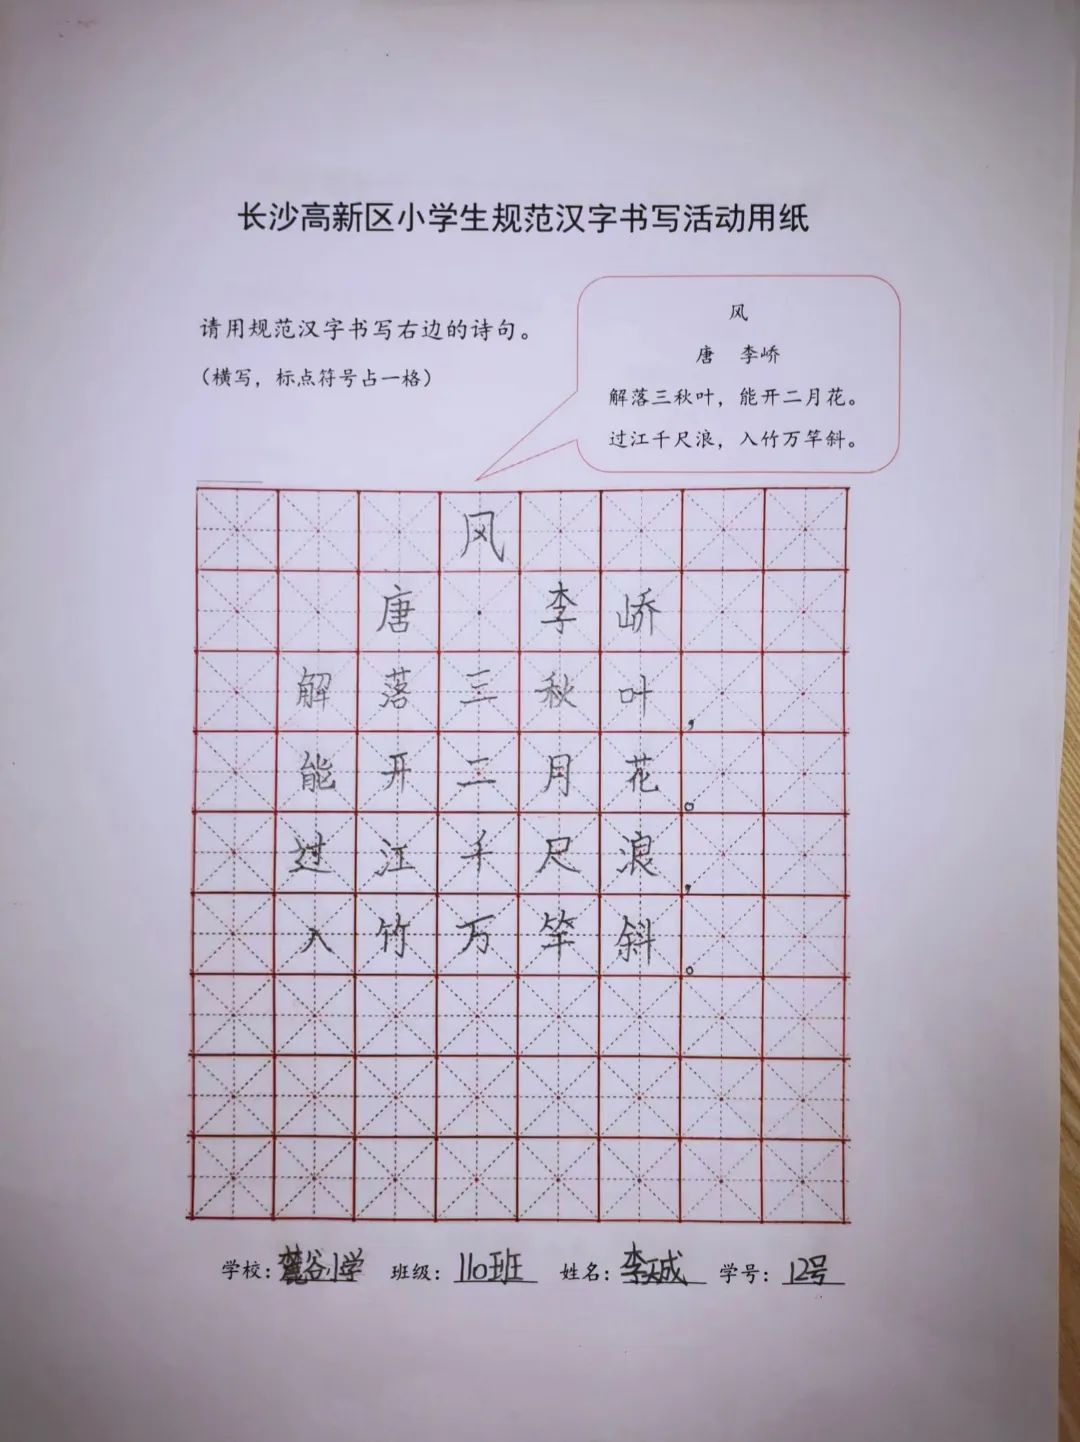 长沙高新区小学生规范汉字书写活动用纸
请用规范汉字书写右边的诗句。
（横写，标点符号占一格）
风
唐 李峤
解落三秋叶，能开二月花。
过江千尺浪，入竹万竿斜。
风
唐 李峤
解落三秋叶，
能开二月花。
过江千尺浪，
入竹万竿斜。
学校：麓谷小学 班级：110班 姓名：李天成 学号：12号